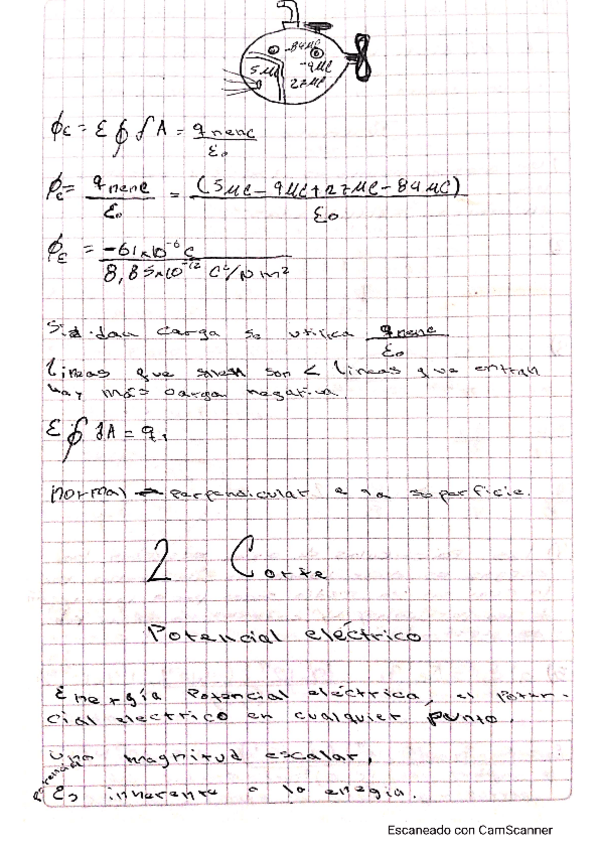 -84μC
5μC -9μC
27μC
ϕε = ε ∮ ∫ A = qnenc / ε₀
ϕε = qnenc / ε₀ = (5μC - 9μC + 27μC - 84μC) / ε₀
ϕε = -61x10⁻⁶ C / 8,85x10⁻¹² C²/N m²
Si dan carga se utiliza qnenc / ε₀
lineas que salen son < lineas que entran
hay más carga negativa.
ε ∮ dA = q.
normal → perpendicular a la superficie.
2 Corte
Potencial eléctrico
Energía Potencial eléctrica, el Poten-
cial electrico en cualquier punto.
una magnitud escalar,
Es inherente a la energia.